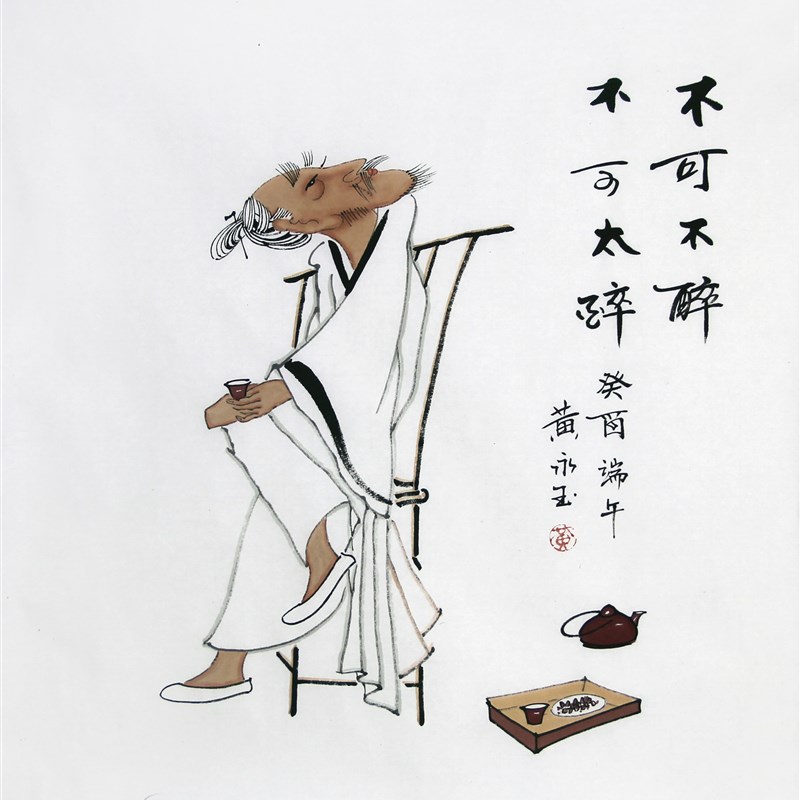 不可不醉
不可太醉
癸酉端午
黄永玉
黄